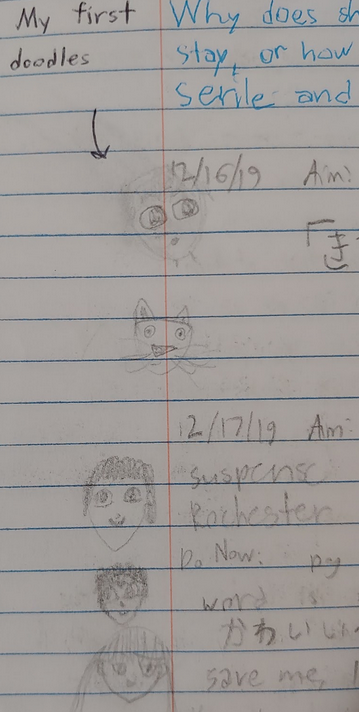 My first
doodles
Why does sh
stay, or how
serile and
12/16/19 Aim:
「き
12/17/19 Aim:
suspense
Rochester
Do Now: py
word is
かわいい
save me,